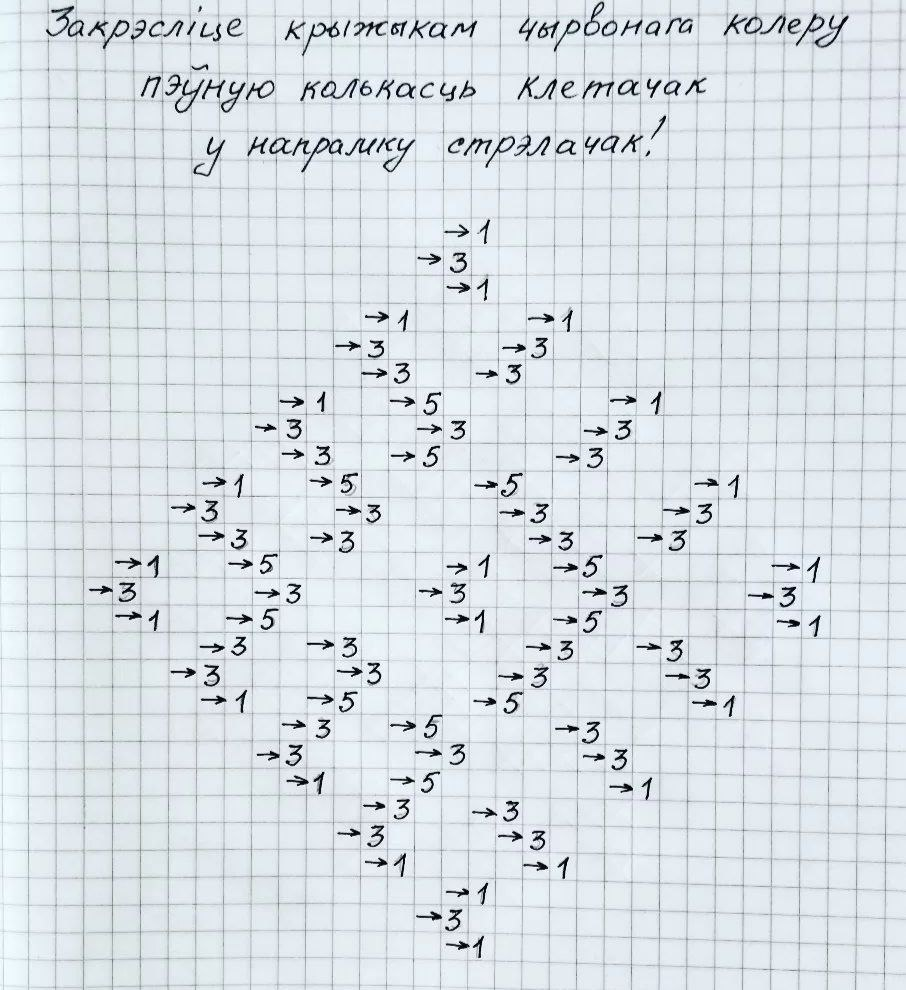 Закрэсліце крыжыкам чырвонага колеру
пэўную колькасць клетачак
у напрамку стрэлачак!
→1
→3
→1
→1 →1
→3 →3
→3 →3
→1 →5 →1
→3 →3 →3
→3 →5 →3
→1 →5 →5 →1
→3 →3 →3 →3
→3 →3 →3 →3
→1 →5 →1 →5 →1
→3 →3 →3 →3 →3
→1 →5 →1 →5 →1
→3 →3 →3 →3
→3 →3 →3 →3
→1 →5 →5 →1
→3 →5 →3
→3 →3 →3
→1 →5 →1
→3 →3
→3 →3
→1 →1
→1
→3
→1